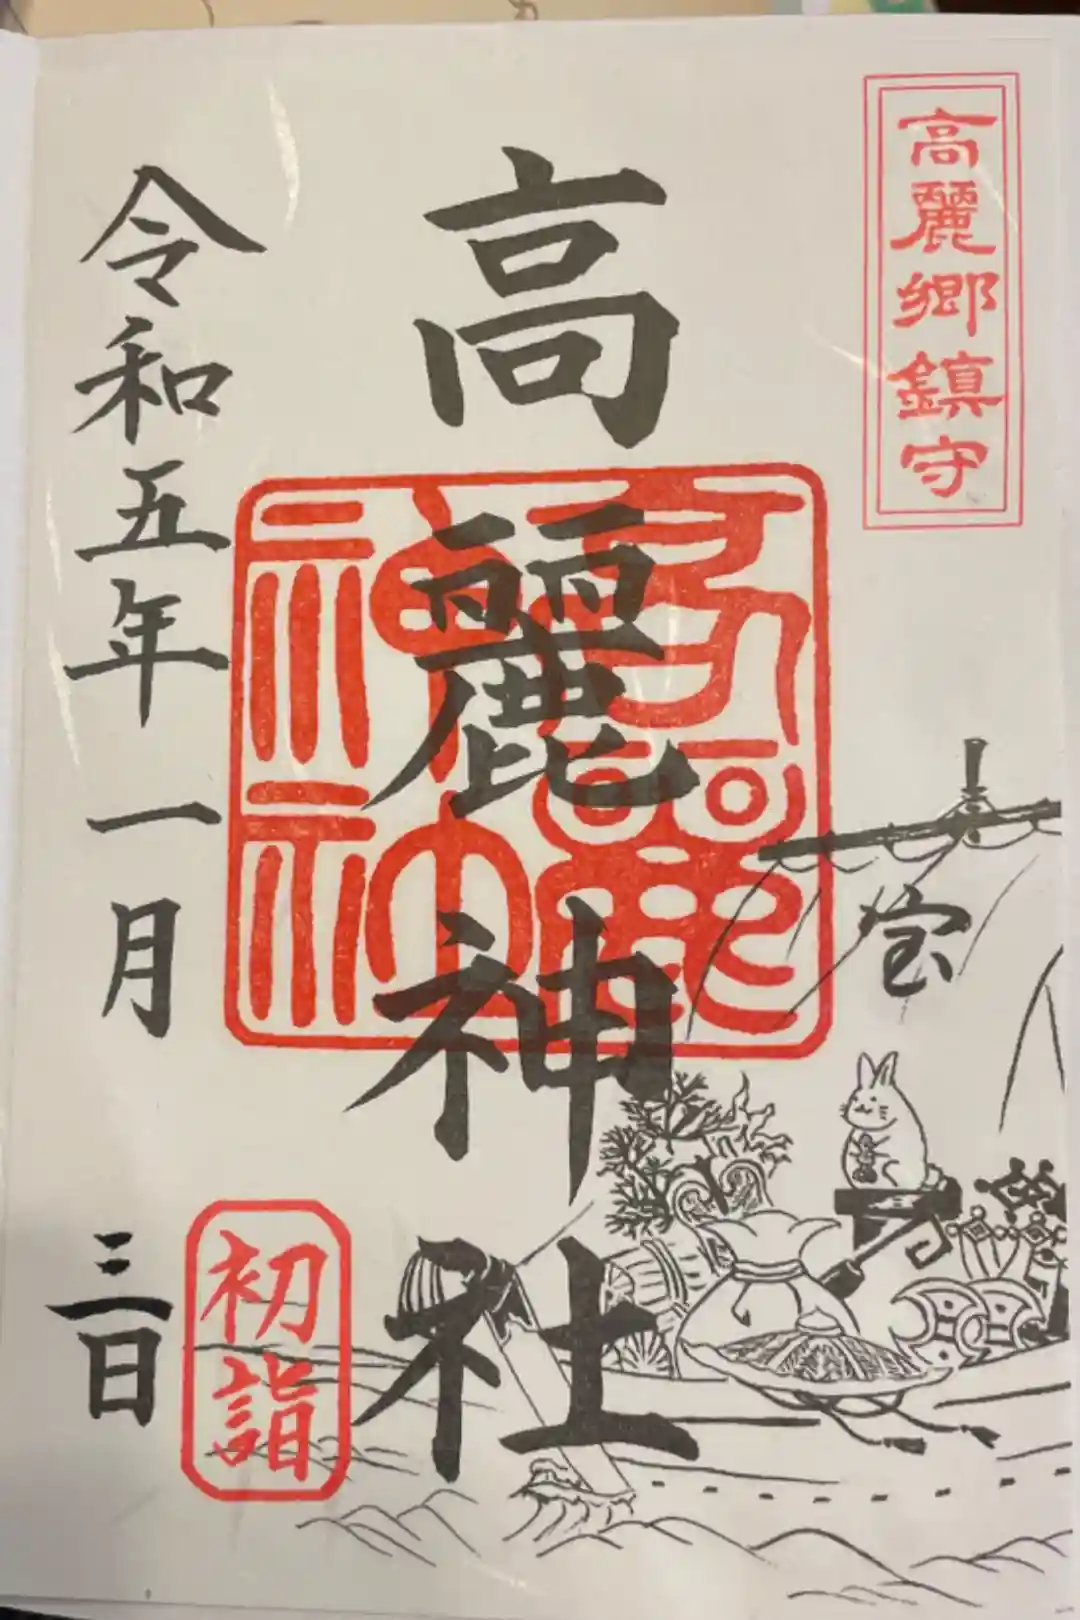 高麗郷鎮守
高麗神社
高麗神社
宝
令和五年一月三日
初詣